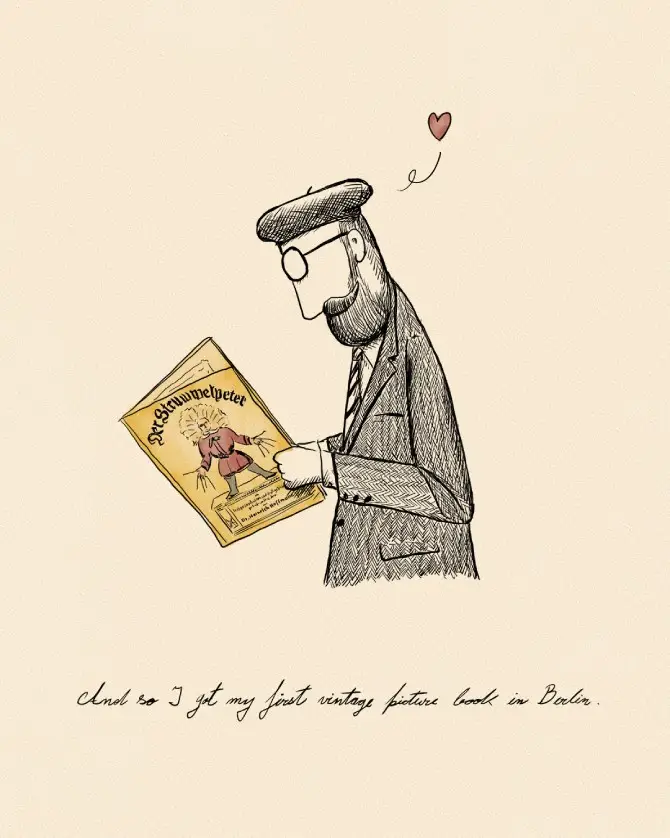 Der Struwwelpeter
Dr. Heinrich Hoffmann
And so I got my first vintage picture book in Berlin.